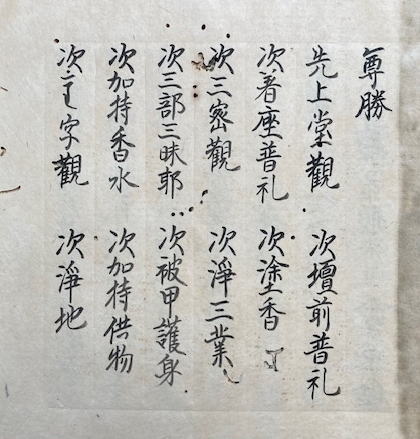 尊勝
先上堂觀　次壇前普礼
次着座普礼　次塗香
次三密觀　次淨三業
次三部三昧耶　次被甲護身
次加持香水　次加持供物
次字觀　次淨地